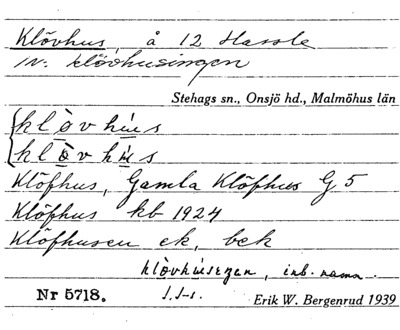 Klövhus, å 12 Hassle
iv. klövhusingen
Stehags sn., Onsjö hd., Malmöhus län
klòvhús
klòvhús
Klöfhus, Gamla Klöfhus G5
Klöfhus kb 1924
Klöfhusen ek, bek
klòvhúseŋen, inb. namn.
Nr 5718. Erik W. Bergenrud 1939